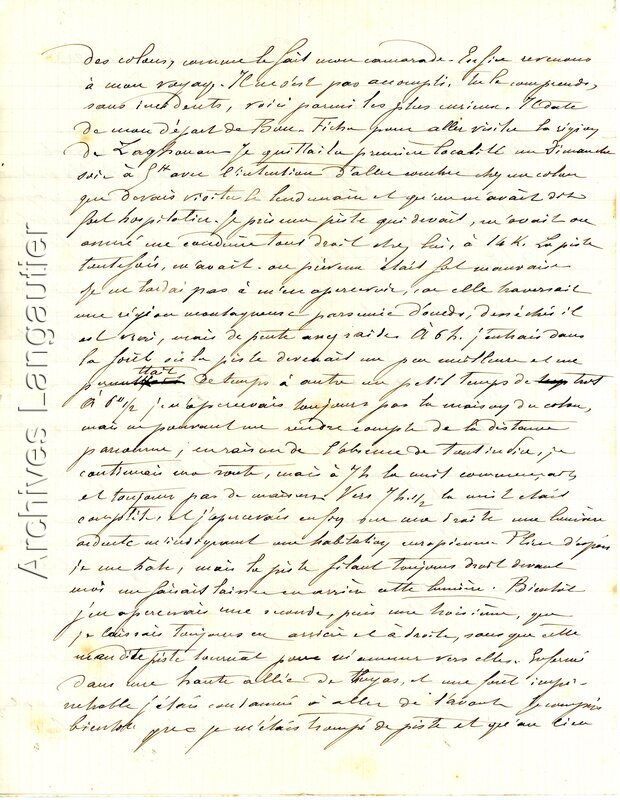 des colons, comme le fait mon camarade. Enfin revenons
à mon voyage. Il ne s'est pas accompli, tu le comprends,
sans incidents, voici parmi les plus curieux. Il date
de mon départ de Bou-Ficha pour aller visiter la région
de Zaghouan. Je quittai la première localité un Dimanche
soir à 5h avec l'intention d'aller coucher chez un colon
que je devais visiter le lendemain et qu'on m'avait dit
fort hospitalier. Je pris une piste qui devait, m'avait on
assuré me conduire tout droit chez lui, à 14 K. La piste
toutefois, m'avait-on prévenu était fort mauvaise
Je ne tardai pas à m'en apercevoir, car elle traversait
une région montagneuse parsemée d'oueds, desséchés il
est vrai, mais de pente assez raides. À 6h. j'entrais dans
la forêt où la piste devenait un peu meilleure et me
permettait de temps à autre un petit temps de trot
À 6h 1/2 je n'apercevais toujours pas la maison du colon,
mais ne pouvant me rendre compte de la distance
parcourue, en raison de l'absence de tout indice, je
continuais ma route, mais à 7h la nuit commençait
et toujours pas de maison. Vers 7h 1/2 la nuit était
complète, et j'apercevais enfin sur ma droite une lumière
ardente m'indiquant une habitation européenne. Plein d'espoir
je me hâte, mais la piste filant toujours droit devant
moi me faisait laisser en arrière cette lumière. Bientôt
j'en apercevais une seconde, puis une troisième, que
je laissais toujours en arrière et à droite, sans que cette
maudite piste tournât pour m'amener vers elles. Enfermé
dans une haute allée de thuyas, et une forêt impé-
nétrable j'étais condamné à aller de l'avant. Je compris
bientôt que je m'étais trompé de piste et qu'au lieu
Archives Langautier